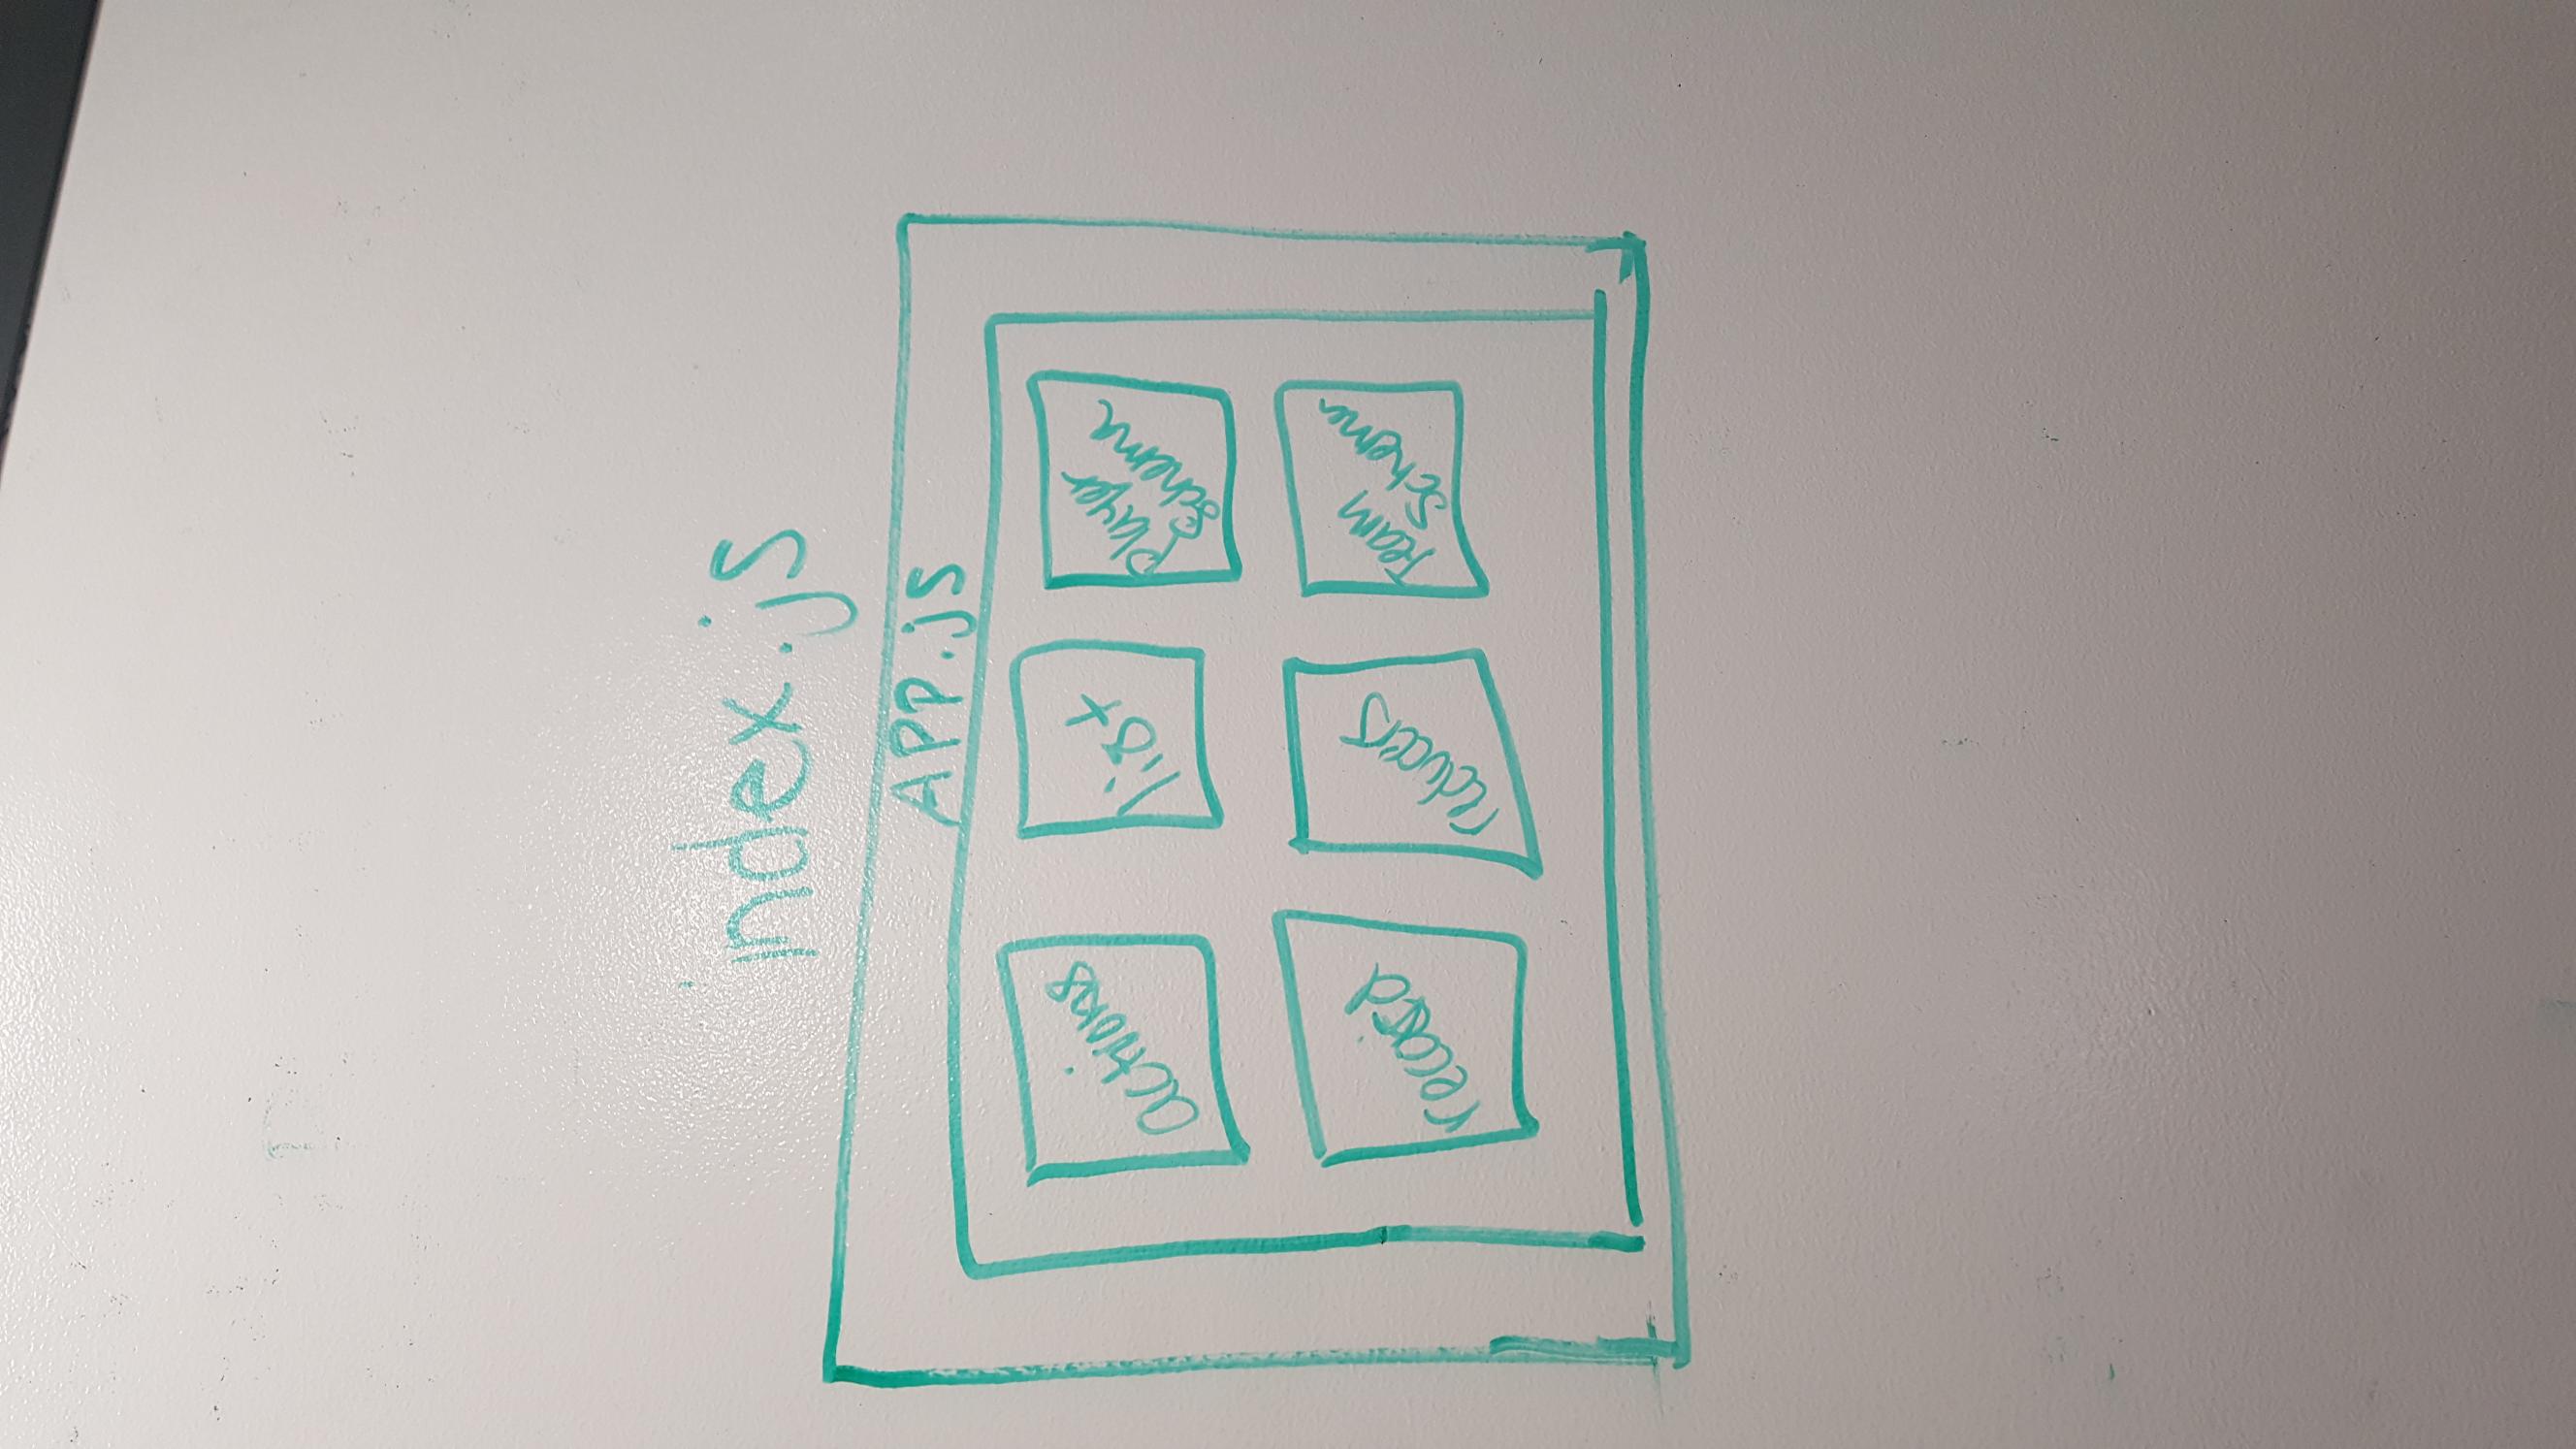 index.js
APP.js
actions
list
player
Schema
record
reducers
Team
Schema